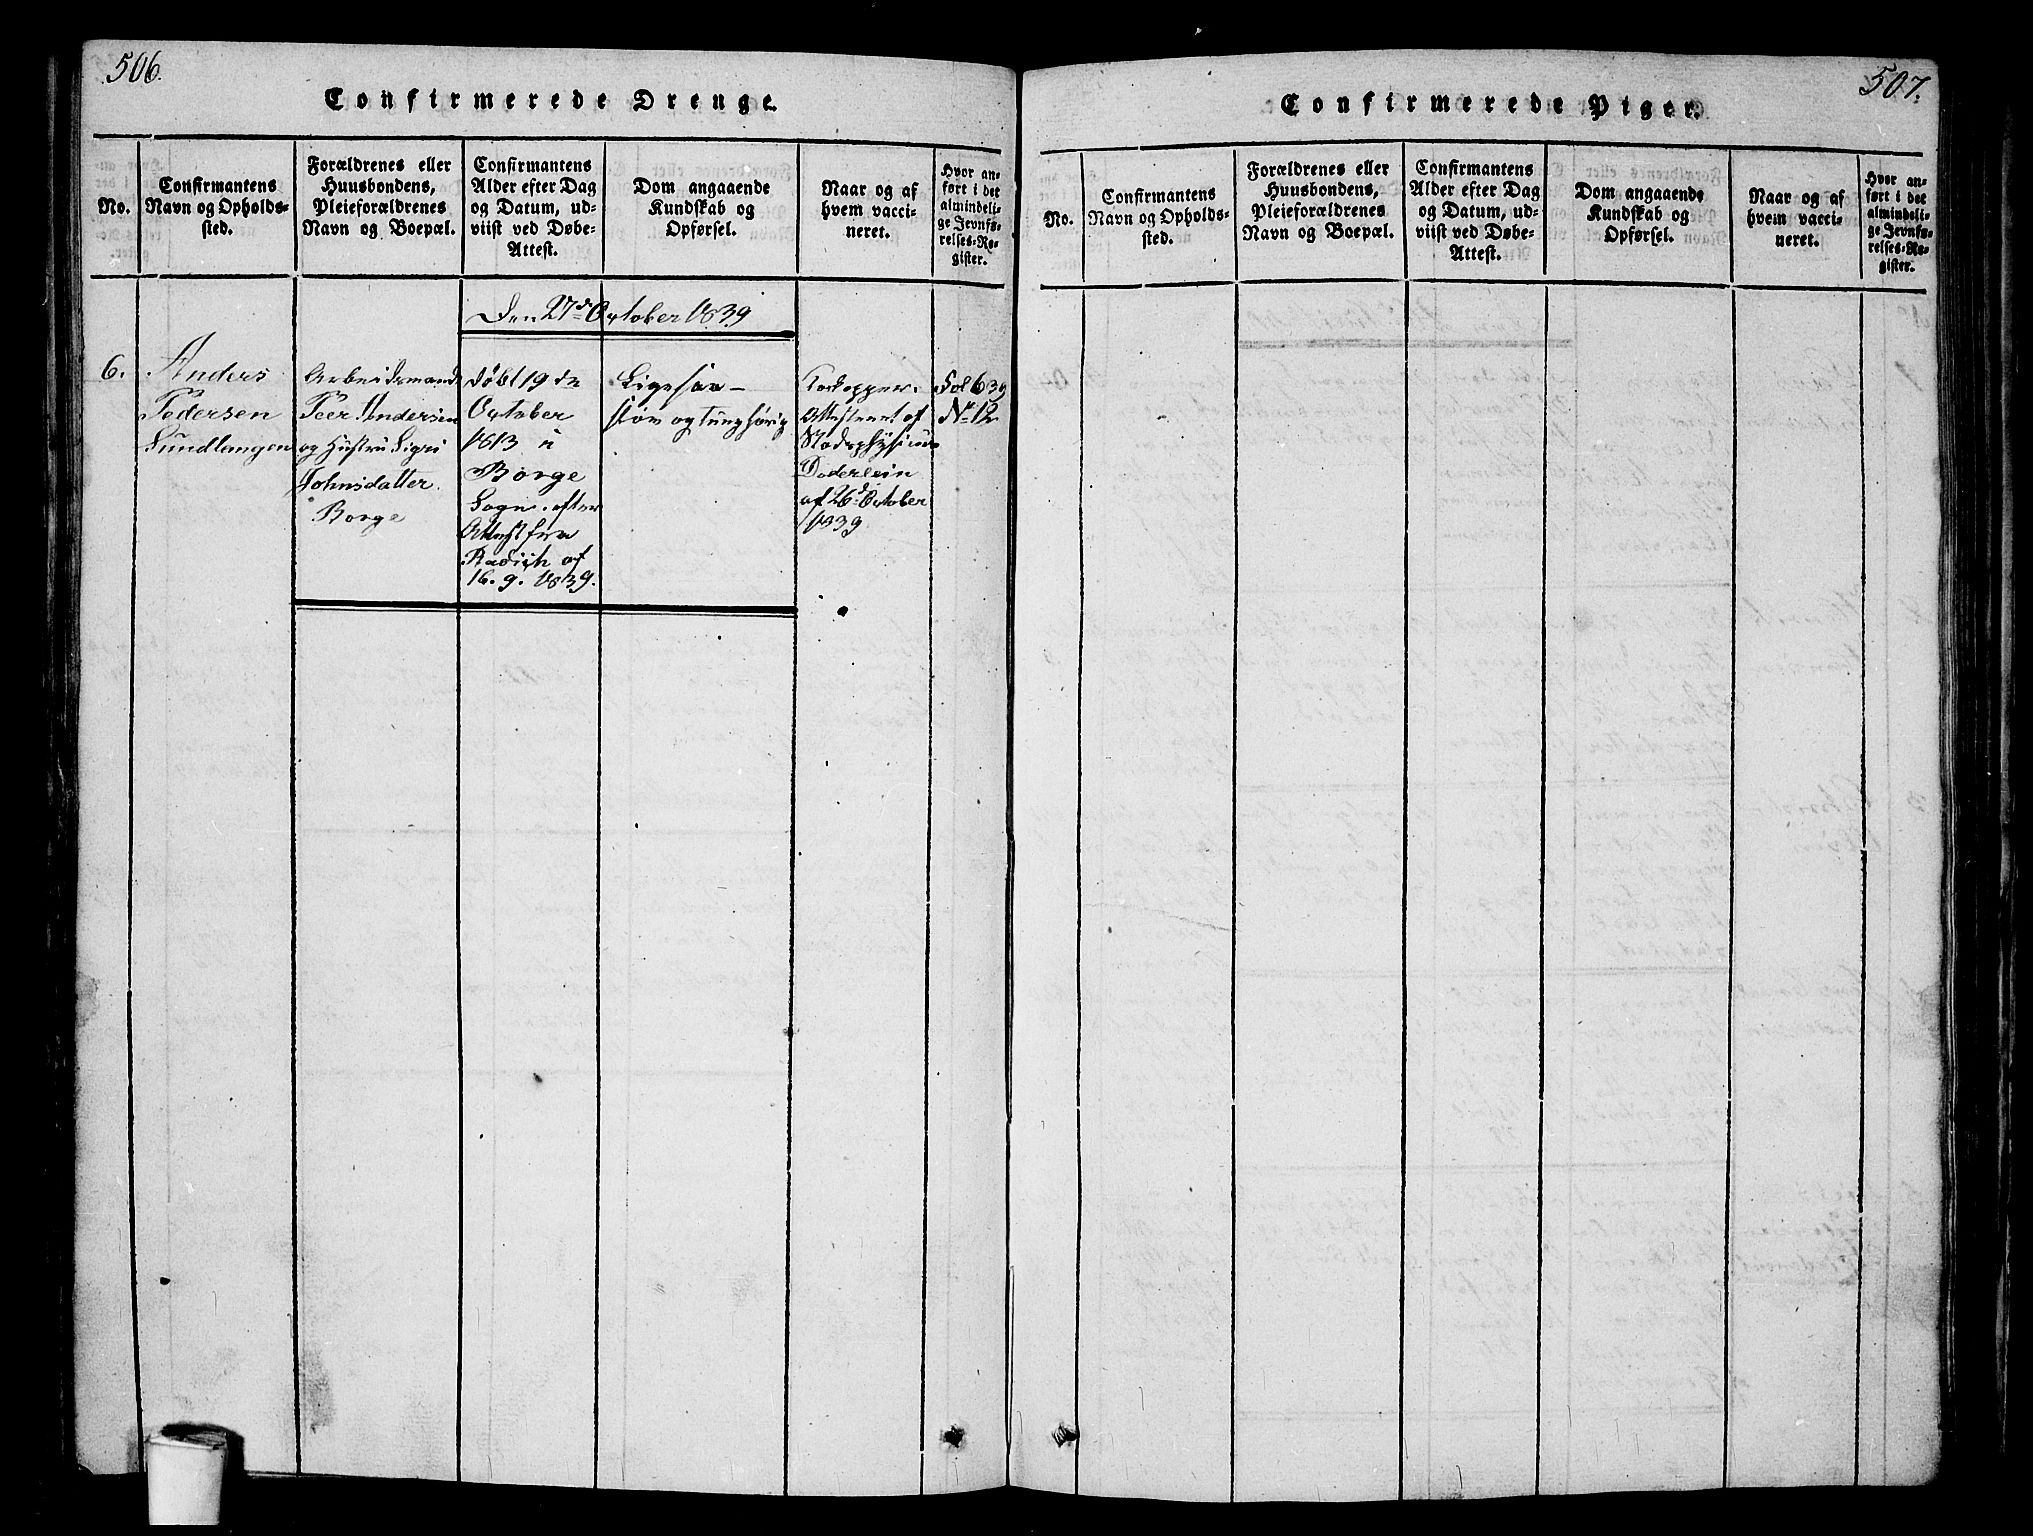 506.
Confirmerede Drenge.
No.
Confirmantens
Navn og Opholds-
sted.
Forældrenes eller
Huusbondens,
Pleieforældrenes
Navn og Boepæl.
Confirmantens
Alder efter Dag
og Datum, ud-
viist ved Døbe-
Attest.
Dom angaaende
Kundskab og
Opførsel.
Naar og af
hvem vacci-
neret.
Hvor an-
ført i det
almindeli-
ge Jevnfø-
relses-Re-
gister.
Den 27de October 1839
6.
Anders
Pedersen
Sundløngen
Arbeidsmand
Peer Andersen
og Hustru Sigri
Johnsdatter
Borge
døbt 19 de
October
1813 i
Borge
Sogn. efter
Attest fra
Radich af
16. 9. 1839.
Ligesaa –
sløv og tunghørig
Kokopper.
Attesteret af
Stadsphysicus
Døderlein
af 26d October
1839
Fol 639
No 12
507.
Confirmerede Piger.
No.
Confirmantens
Navn og Opholds-
sted.
Forældrenes eller
Huusbondens,
Pleieforældrenes
Navn og Boepæl.
Confirmantens
Alder efter Dag
og Datum, ud-
viist ved Døbe-
Attest.
Dom angaaende
Kundskab og
Opførsel.
Naar og af
hvem vacci-
neret.
Hvor an-
ført i det
almindeli-
ge Jevnfø-
relses-Re-
gister.